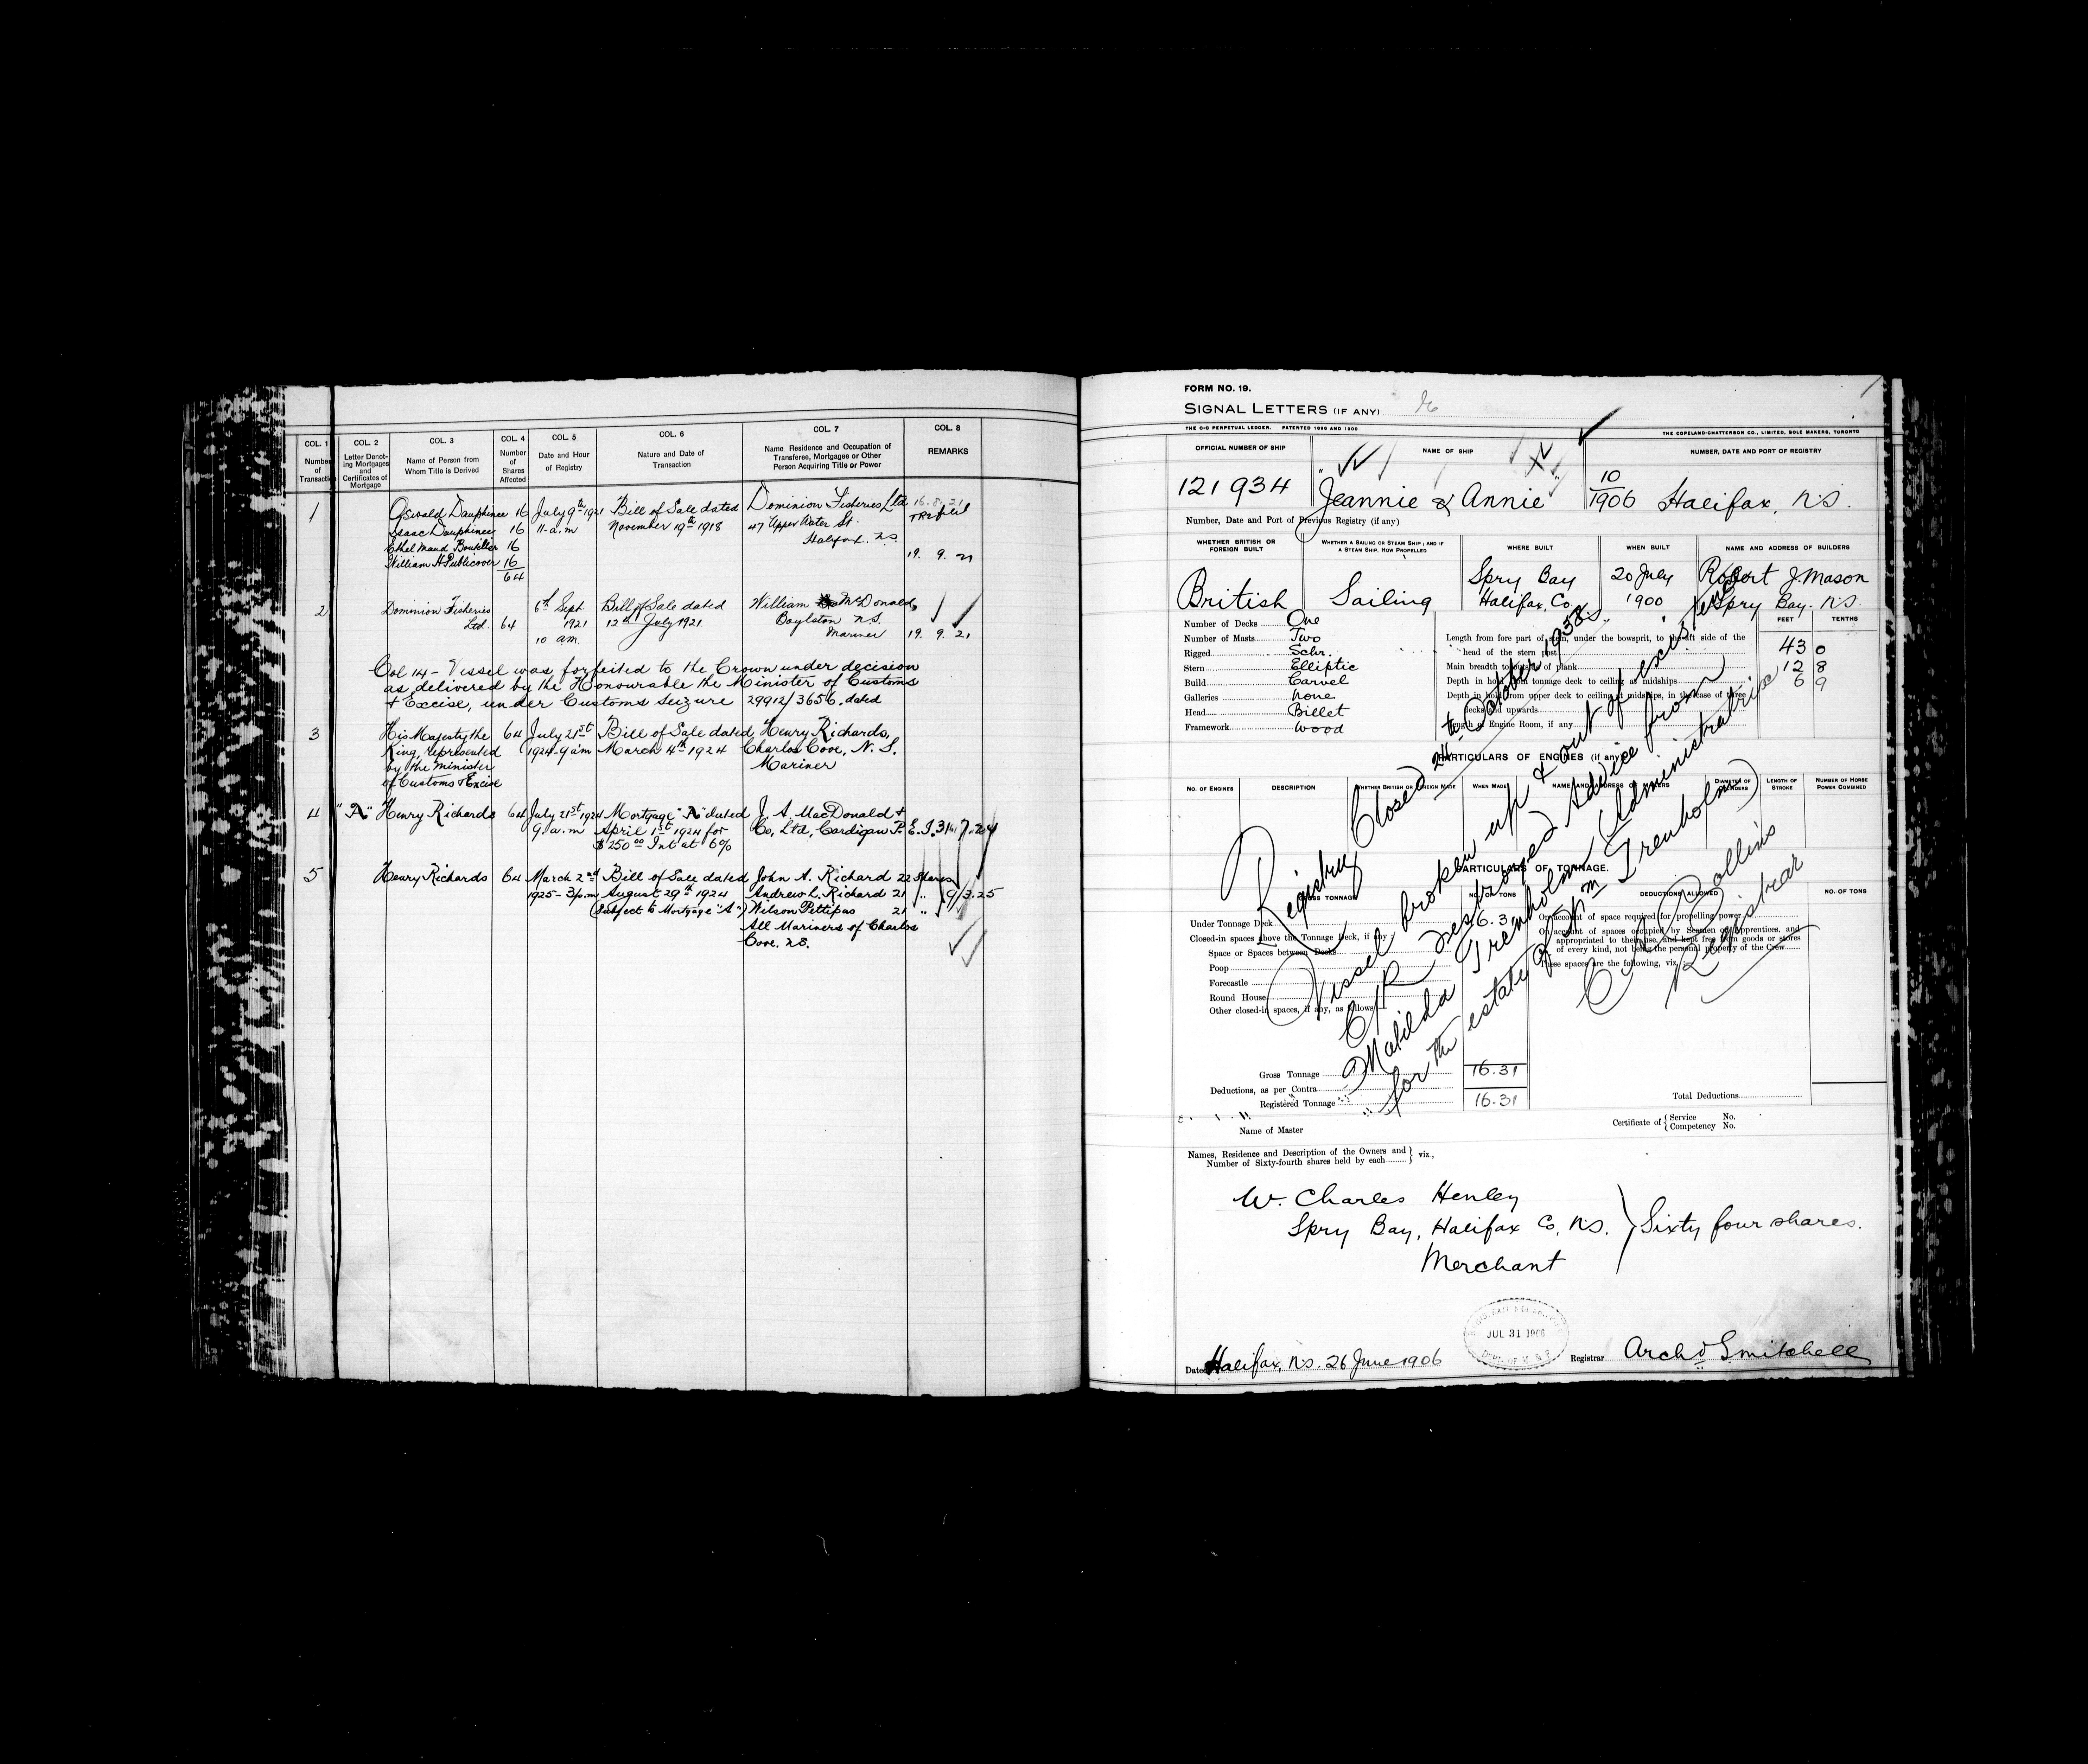 COL. 1
Number
of
Transaction
COL. 2
Letter Denot-
ing Mortgages
and
Certificates of
Mortgage
COL. 3
Name of Person from
Whom Title is Derived
COL. 4
Number
of
Shares
Affected
COL. 5
Date and Hour
of Registry
COL. 6
Nature and Date of
Transaction
COL. 7
Name Residence and Occupation of
Transferee, Mortgagee or Other
Person Acquiring Title or Power
COL. 8
REMARKS
1 Oswald Dauphinee 16 July 9th 1921 Bill of Sale dated Dominion Fisheries Ltd 16.8.21
Isaac Dauphinee 16 11-a.m November 19th 1918 47 Upper Water St.
Ethel Maud Boutilier 16 Halifax. N.S.
William H Publicover 16 19. 9. 21
64
2 Dominion Fisheries 6th Sept. Bill of Sale dated William McDonald,
Ltd. 64 1921 12th July 1921. Boylston N.S.
10 am. Mariner 19. 9. 21
Col 14 - Vessel was forfeited to the Crown under decision
as delivered by the Honourable the Minister of Customs
& Excise, under Customs seizure 29912/3656. dated
3 His Majesty the 64 July 21st Bill of Sale dated Henry Richards,
King, represented 1924-9am March 4th 1924 Charlos Cove, N.S.
by the Minister Mariner
of Customs & Excise
4 "A" Henry Richards 64 July 21st 1924 Mortgage "A" dated J. A. MacDonald &
9 a.m April 1st 1924 for Co, Ltd, Cardigan P.E.I. 31.7.24
$250.00 Int at 6%
5 Henry Richards 64 March 2nd Bill of Sale dated John A. Richard 22 Shares
1925-3p.m August 29th 1924 Andrew L. Richard 21 " 9/3.25
(Subject to Mortgage "A") Wilson Pettipas 21 "
All Mariners of Charlos
Cove. N.S.
FORM NO. 19.
SIGNAL LETTERS (IF ANY)
THE C-C PERPETUAL LEDGER. PATENTED 1896 AND 1900
THE COPELAND-CHATTERSON CO., LIMITED, SOLE MAKERS, TORONTO
OFFICIAL NUMBER OF SHIP
NAME OF SHIP
NUMBER, DATE AND PORT OF REGISTRY
121934 "Jeannie & Annie" 10/1906 Halifax, N.S.
Number, Date and Port of Previous Registry (if any)
WHETHER BRITISH OR
FOREIGN BUILT
WHETHER A SAILING OR STEAM SHIP; AND IF
A STEAM SHIP, HOW PROPELLED
WHERE BUILT
WHEN BUILT
NAME AND ADDRESS OF BUILDERS
British Sailing
Spry Bay
Halifax, Co,
20 July
1900
Robert J. Mason
Spry Bay. N.S.
FEET TENTHS
Number of Decks One
Number of Masts Two
Rigged Schr.
Stern Elliptic
Build Carvel
Galleries None
Head Billet
Framework Wood
Length from fore part of stem, under the bowsprit, to the aft side of the
head of the stern post 43 0
Main breadth to outside of plank 12 8
Depth in hold from tonnage deck to ceiling at midships 6 9
Depth in hold from upper deck to ceiling at midships, in the case of three
decks and upwards
Length of Engine Room, if any
PARTICULARS OF ENGINES (if any)
NO. OF ENGINES
DESCRIPTION
WHETHER BRITISH OR FOREIGN MADE
WHEN MADE
NAME AND ADDRESS OF MAKERS
DIAMETER OF
CYLINDERS
LENGTH OF
STROKE
NUMBER OF HORSE
POWER COMBINED
PARTICULARS OF TONNAGE.
GROSS TONNAGE
NO. OF TONS
DEDUCTIONS ALLOWED
NO. OF TONS
Under Tonnage Deck 16.31
Closed-in spaces above the Tonnage Deck, if any :
Space or Spaces between Decks
Poop
Forecastle
Round House
Other closed-in spaces, if any, as follows
On account of space required for propelling power
On account of spaces occupied by Seamen or Apprentices, and
appropriated to their use, and kept free from goods or stores
of every kind, not being the personal property of the Crew
These spaces are the following, viz. :
Gross Tonnage 16.31
Deductions, as per Contra
Registered Tonnage 16.31
Total Deductions
Registry Closed 24th October 1938.
Vessel broken up & out of existence
C/R destroyed Advice from
Matilda Trenholm (Administratrix
for the estate of Wm Trenholm)
Collins
Registrar
Name of Master
Certificate of { Service No.
Competency No.
Names, Residence and Description of the Owners and
Number of Sixty-fourth shares held by each } viz.,
W. Charles Henley
Spry Bay, Halifax Co, N.S. } Sixty four shares.
Merchant
JUL 31 1906
Dated Halifax, N.S. 26 June 1906
Registrar Archd S. Mitchell